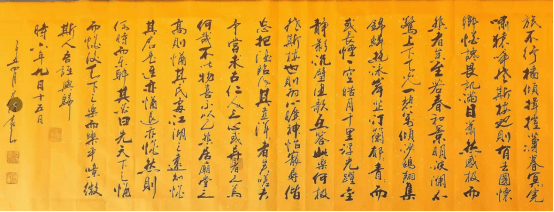 旅不行檣傾楫摧薄暮冥冥
嘯猿啼登斯樓也則有去國懷
鄉憂讒畏譏滿目蕭然感極而
悲者矣至若春和景明波瀾不
驚上下天光一碧萬頃沙鷗翔集
錦鱗游泳岸芷汀蘭郁郁青青而
或長煙一空皓月千里浮光躍金
靜影沉璧漁歌互答此樂何極
登斯樓也則有心曠神怡寵辱偕
忘把酒臨風其喜洋洋者矣嗟夫
予嘗求古仁人之心或異二者之為
何哉不以物喜不以己悲居廟堂之
高則憂其民處江湖之遠則憂
其君是進亦憂退亦憂然則
何時而樂耶其必曰先天下之憂
而憂後天下之樂而樂乎噫微
斯人吾誰與歸
時六年九月十五日